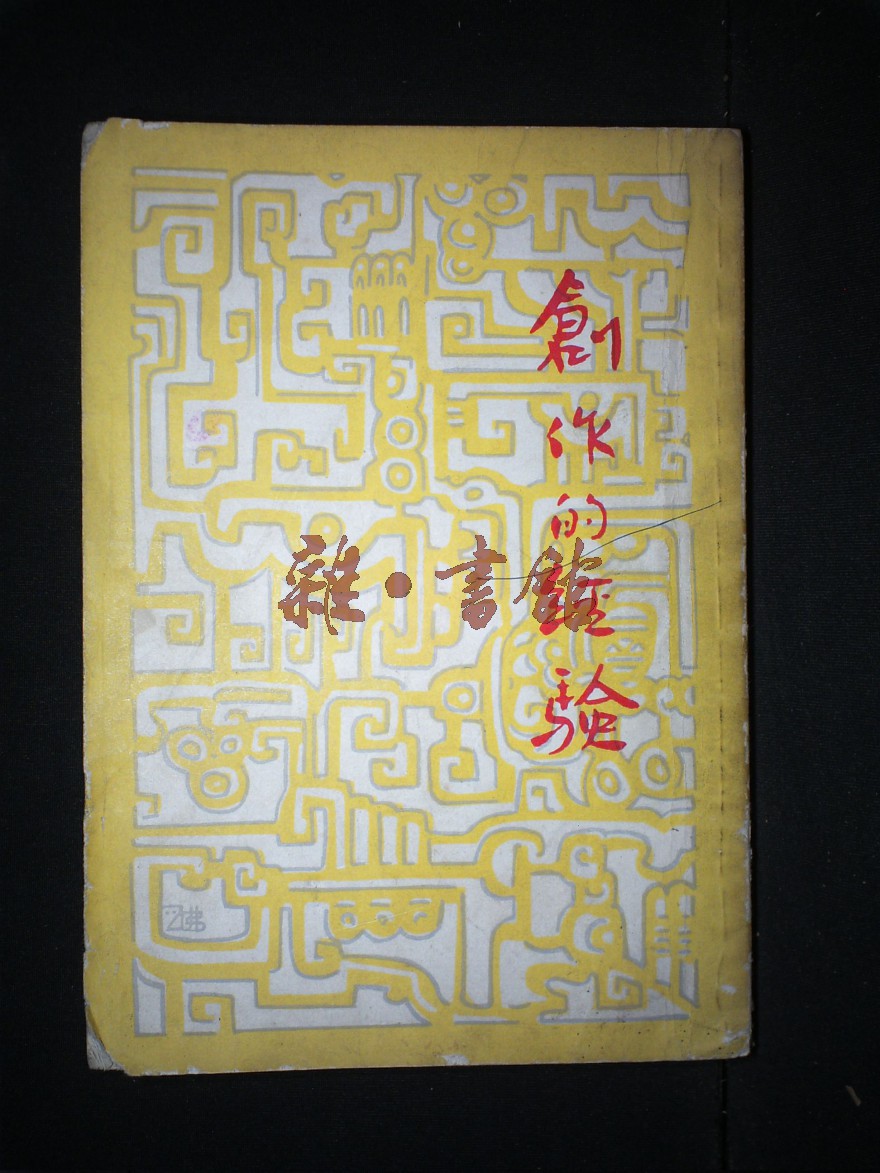 創作的經驗
雜·書館